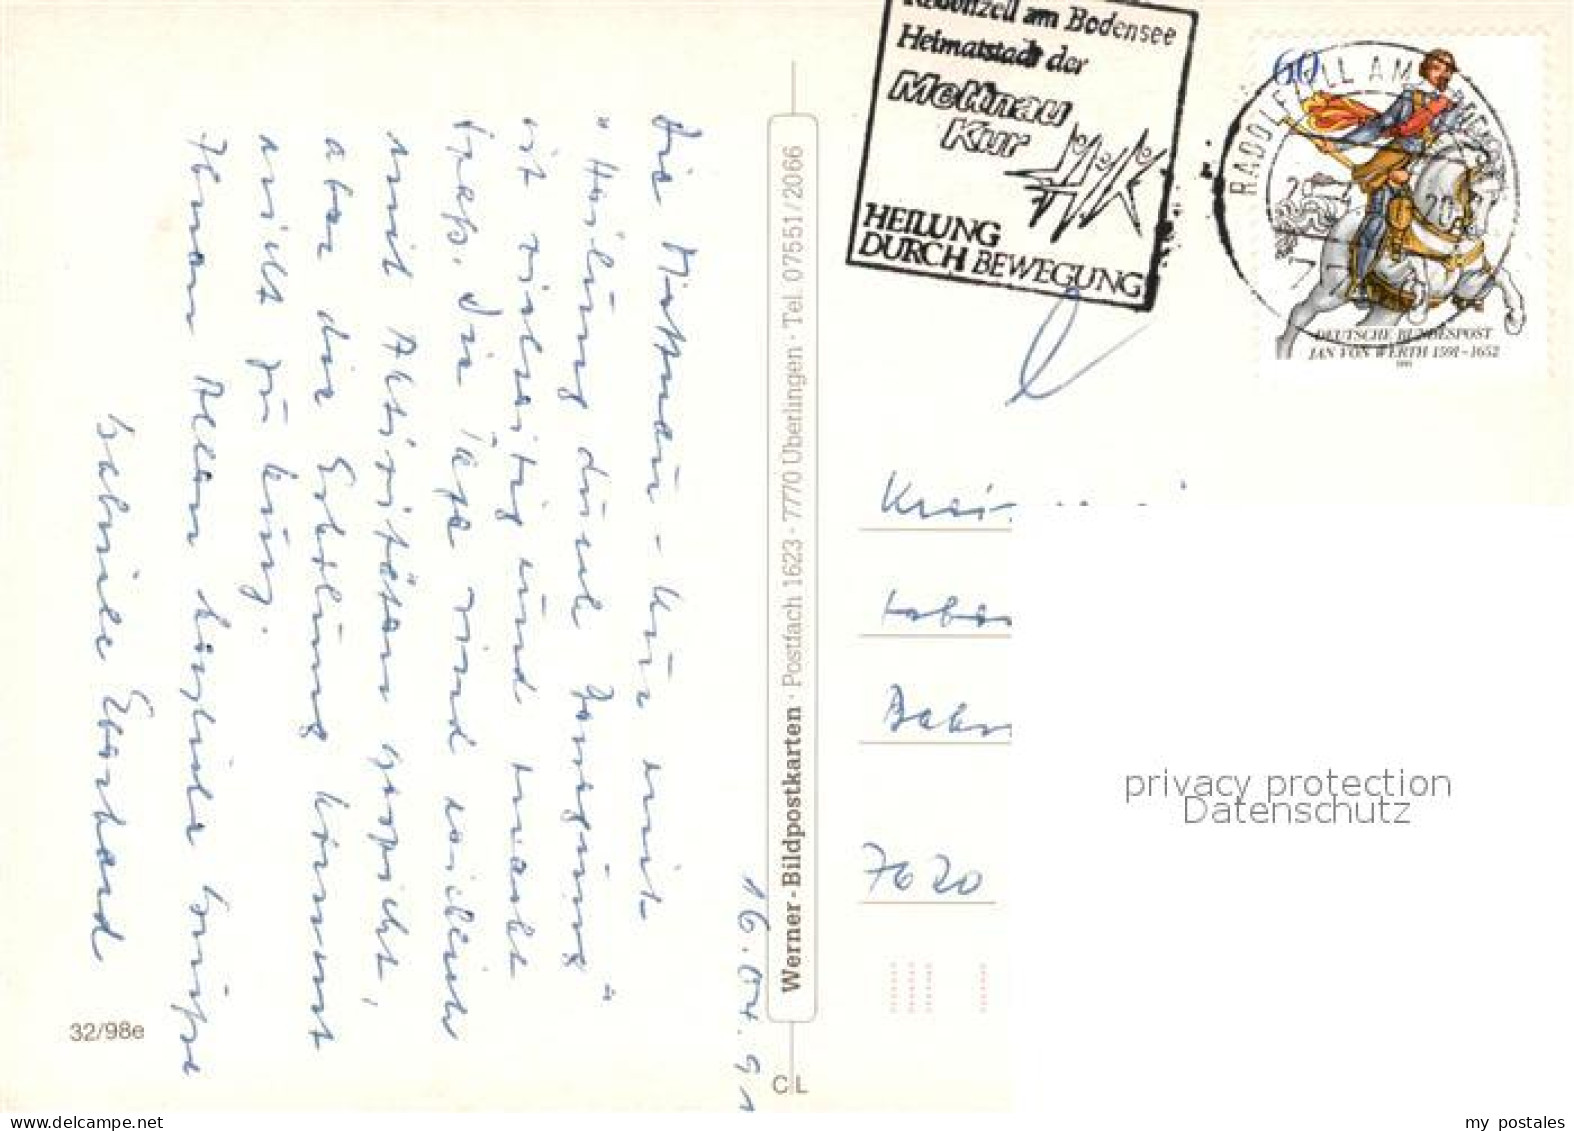 Radolfzell am Bodensee
Heimatstadt der
Mettnau
Kur
HEILUNG
DURCH BEWEGUNG
60
RADOLFZELL AM BODENSEE
DEUTSCHE BUNDESPOST
JAN VON WERTH 1591-1652
1991
16.04.91
Die Mettnau-Kur mit
"Heilung durch Bewegung"
ist vielseitig und macht
Spaß. Die Tage sind reichlich
mit Aktivitäten gespickt,
aber die Erholung kommt
nicht zu kurz.
Ihnen Allen herzliche Grüße
Gabriele
Werner-Bildpostkarten · Postfach 1623 · 7770 Überlingen · Tel. 07551/2066
7620
32/98e
CL
privacy protection
Datenschutz
www.delcampe.net
my postales